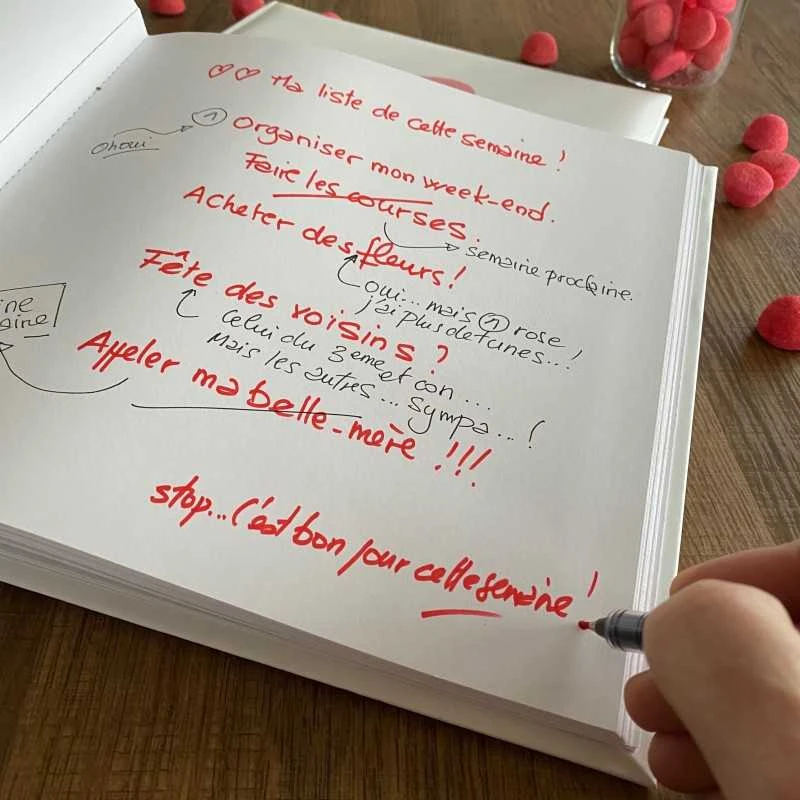 ♡♡ Ma liste de cette semaine !
① Organiser mon week-end.
Oh oui
Faire les courses.
semaine prochaine.
Acheter des fleurs !
oui... mais ① rose !
j'ai plus de tunes...
Fête des voisins ?
Celui du 3eme et con ...
Mais les autres... sympa... !
Appeler ma belle-mère !!!
stop... C'est bon pour cette semaine !